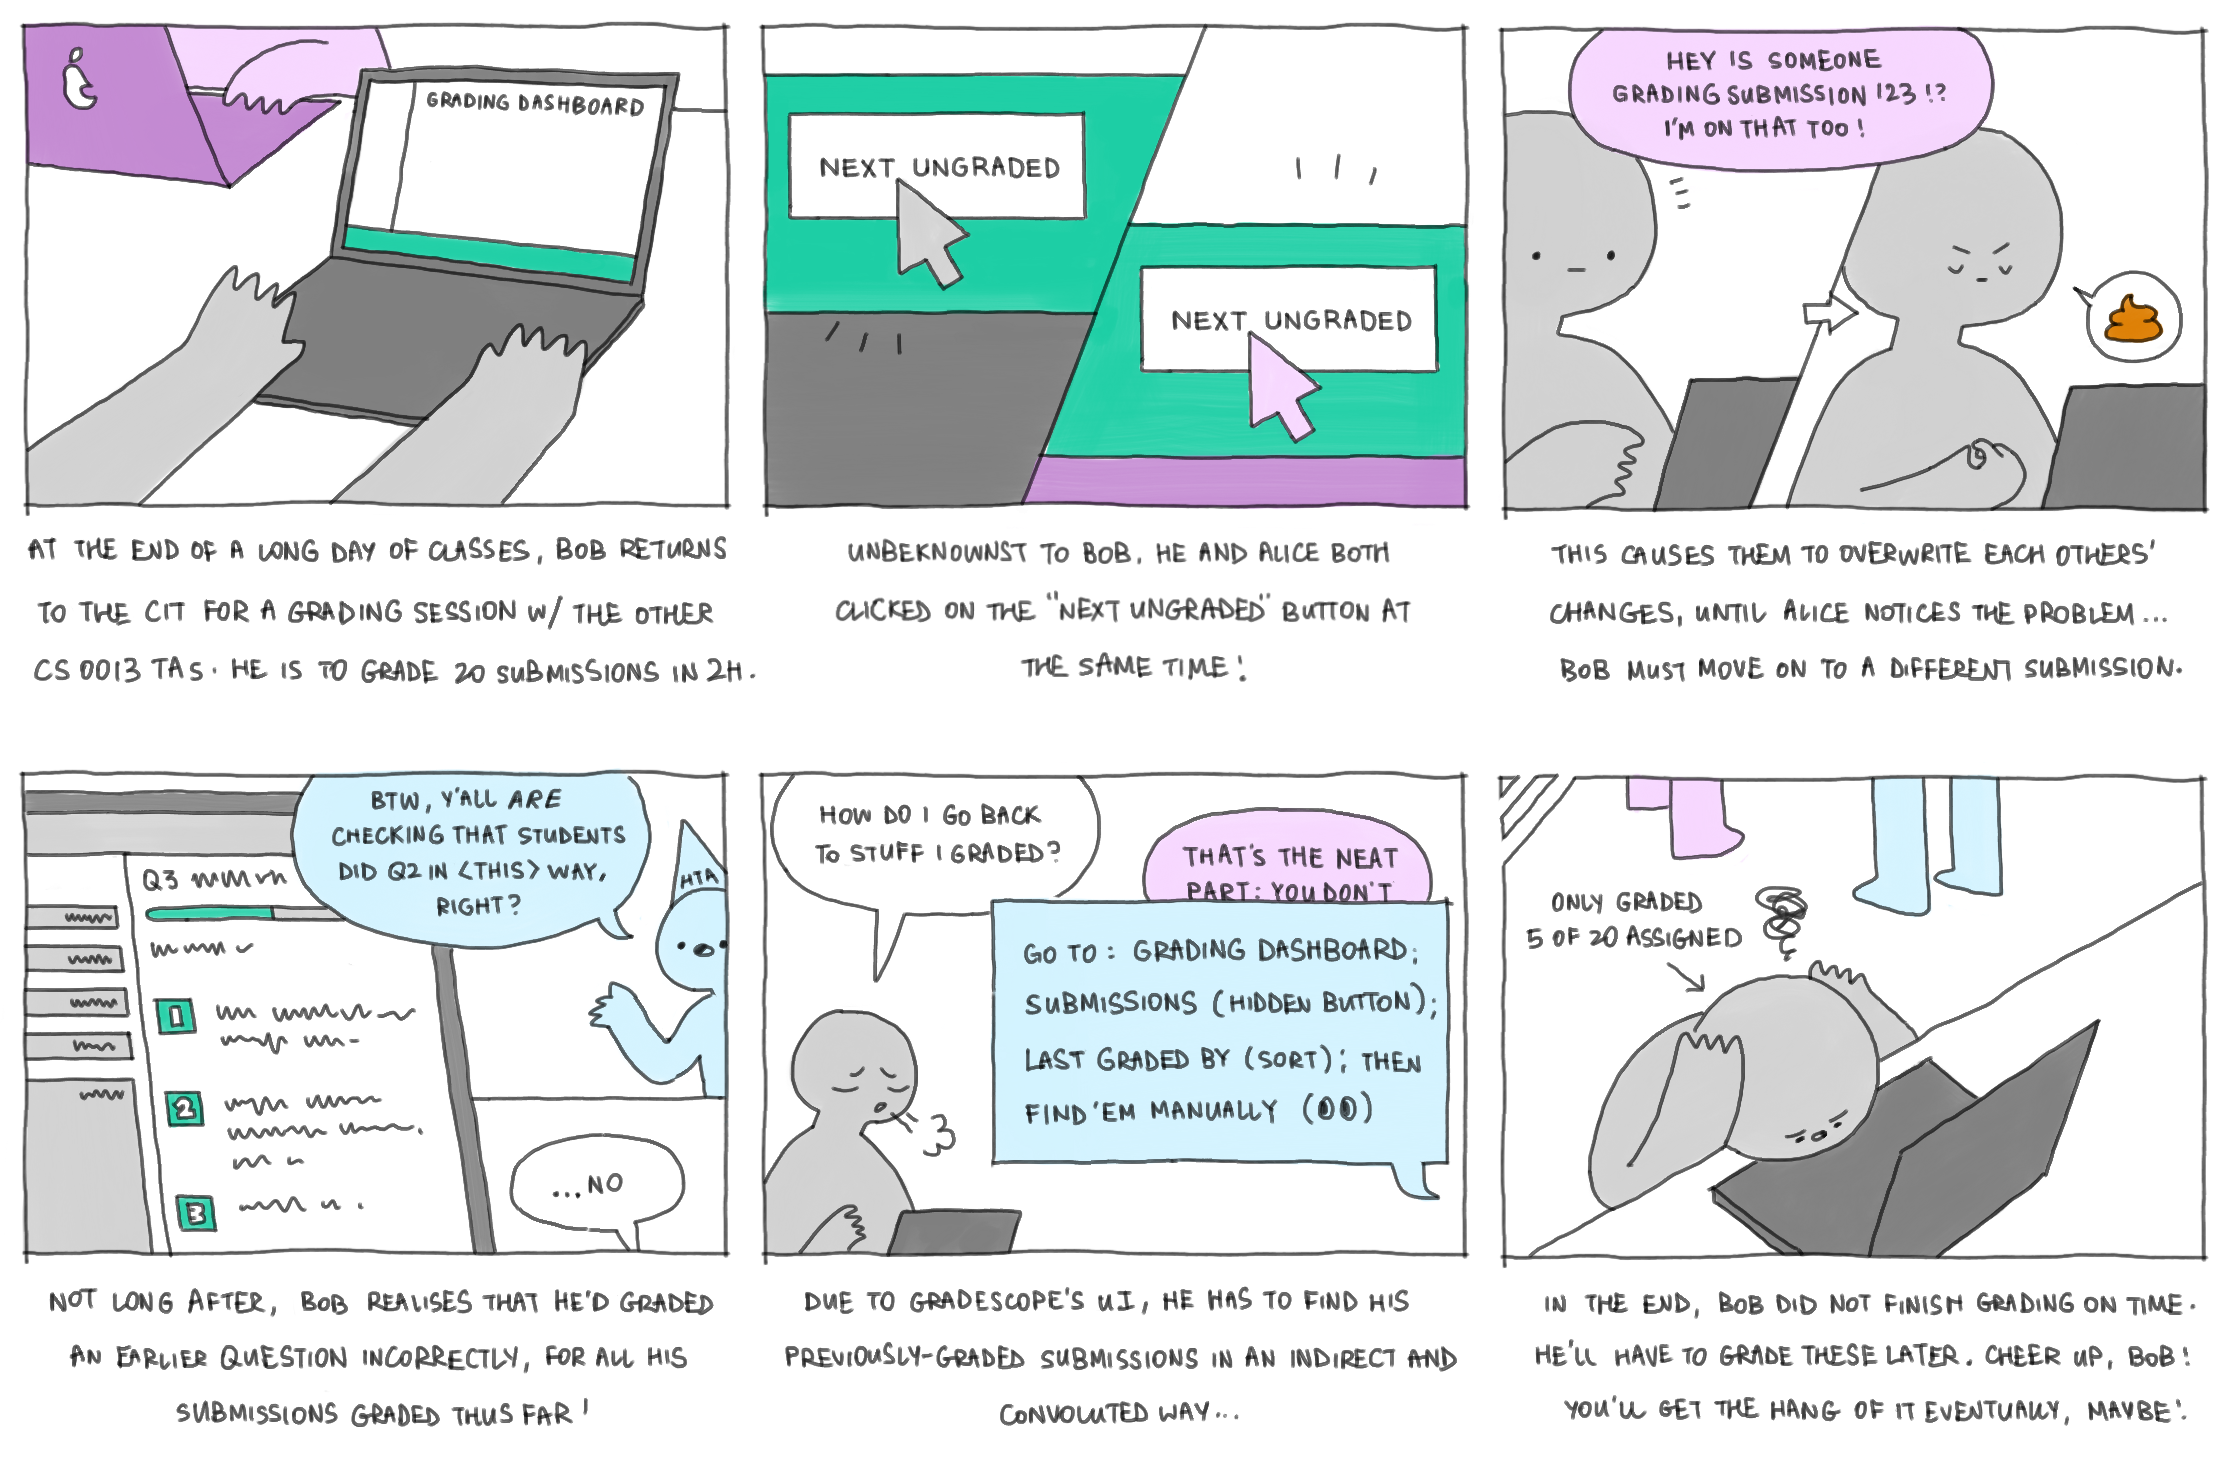 GRADING DASHBOARD
AT THE END OF A LONG DAY OF CLASSES, BOB RETURNS
TO THE CIT FOR A GRADING SESSION W/ THE OTHER
CS 0013 TAS. HE IS TO GRADE 20 SUBMISSIONS IN 2H.
NEXT UNGRADED
NEXT UNGRADED
UNBEKNOWNST TO BOB, HE AND ALICE BOTH
CLICKED ON THE "NEXT UNGRADED" BUTTON AT
THE SAME TIME!
HEY IS SOMEONE
GRADING SUBMISSION 123!?
I'M ON THAT TOO!
THIS CAUSES THEM TO OVERWRITE EACH OTHERS'
CHANGES, UNTIL ALICE NOTICES THE PROBLEM...
BOB MUST MOVE ON TO A DIFFERENT SUBMISSION.
Q3
1
2
3
BTW, Y'ALL ARE
CHECKING THAT STUDENTS
DID Q2 IN <THIS> WAY,
RIGHT?
HTA
...NO
NOT LONG AFTER, BOB REALISES THAT HE'D GRADED
AN EARLIER QUESTION INCORRECTLY, FOR ALL HIS
SUBMISSIONS GRADED THUS FAR!
HOW DO I GO BACK
TO STUFF I GRADED?
THAT'S THE NEAT
PART: YOU DON'T
GO TO: GRADING DASHBOARD;
SUBMISSIONS (HIDDEN BUTTON);
LAST GRADED BY (SORT); THEN
FIND 'EM MANUALLY (00)
DUE TO GRADESCOPE'S UI, HE HAS TO FIND HIS
PREVIOUSLY-GRADED SUBMISSIONS IN AN INDIRECT AND
CONVOLUTED WAY...
ONLY GRADED
5 OF 20 ASSIGNED
IN THE END, BOB DID NOT FINISH GRADING ON TIME.
HE'LL HAVE TO GRADE THESE LATER. CHEER UP, BOB!
YOU'LL GET THE HANG OF IT EVENTUALLY, MAYBE!